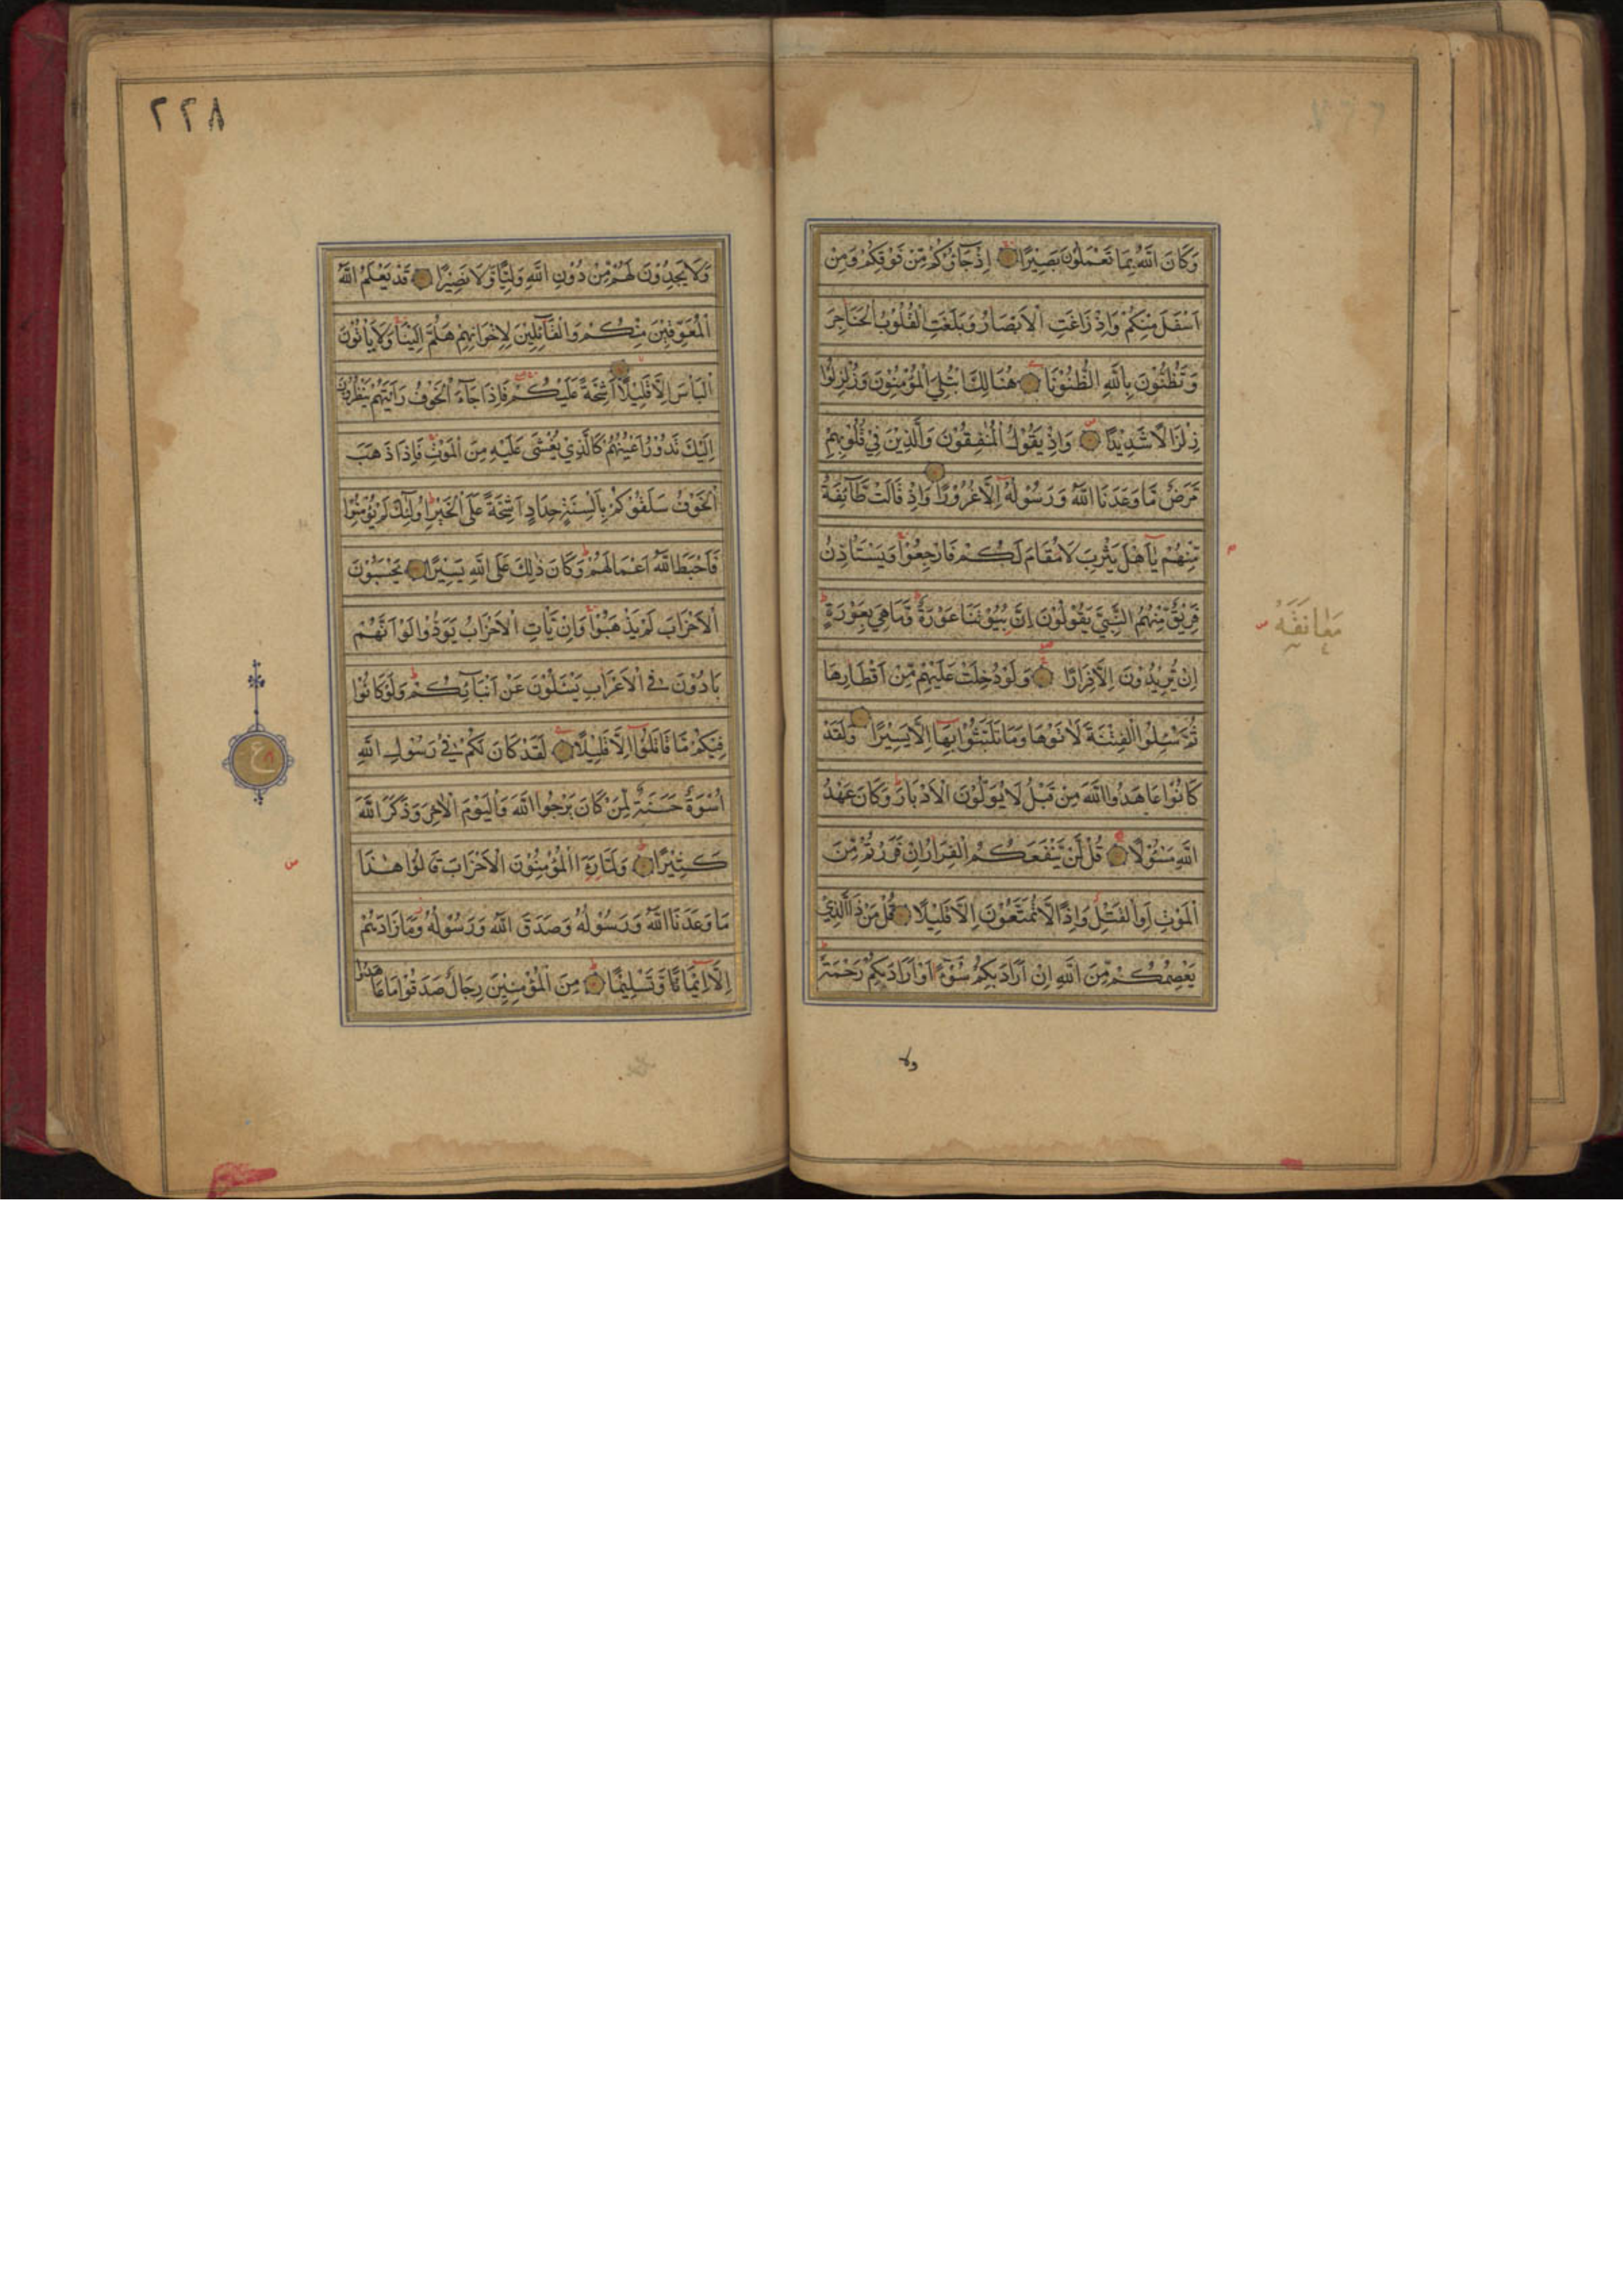 وَكَانَ اللّٰهُ بِمَا تَعْمَلُوْنَ بَصِيْرًا اِذْ جَاؤُكُمْ مِّنْ فَوْقِكُمْ وَمِنْ
اَسْفَلَ مِنْكُمْ وَاِذْ زَاغَتِ الْاَبْصَارُ وَبَلَغَتِ الْقُلُوْبُ الْحَنَاجِرَ
وَتَظُنُّوْنَ بِاللّٰهِ الظُّنُوْنَا هُنَالِكَ ابْتُلِيَ الْمُؤْمِنُوْنَ وَزُلْزِلُوْا
زِلْزَالًا شَدِيْدًا وَاِذْ يَقُوْلُ الْمُنٰفِقُوْنَ وَالَّذِيْنَ فِيْ قُلُوْبِهِمْ
مَّرَضٌ مَّا وَعَدَنَا اللّٰهُ وَرَسُوْلُهٗ اِلَّا غُرُوْرًا وَاِذْ قَالَتْ طَّآئِفَةٌ
مِّنْهُمْ يٰٓاَهْلَ يَثْرِبَ لَا مُقَامَ لَكُمْ فَارْجِعُوْا وَيَسْتَأْذِنُ
فَرِيْقٌ مِّنْهُمُ النَّبِيَّ يَقُوْلُوْنَ اِنَّ بُيُوْتَنَا عَوْرَةٌ وَّمَا هِيَ بِعَوْرَةٍ
اِنْ يُّرِيْدُوْنَ اِلَّا فِرَارًا وَلَوْ دُخِلَتْ عَلَيْهِمْ مِّنْ اَقْطَارِهَا
ثُمَّ سُئِلُوا الْفِتْنَةَ لَاٰتَوْهَا وَمَا تَلَبَّثُوْا بِهَآ اِلَّا يَسِيْرًا وَلَقَدْ
كَانُوْا عَاهَدُوا اللّٰهَ مِنْ قَبْلُ لَا يُوَلُّوْنَ الْاَدْبَارَ وَكَانَ عَهْدُ
اللّٰهِ مَسْئُوْلًا قُلْ لَّنْ يَّنْفَعَكُمُ الْفِرَارُ اِنْ فَرَرْتُمْ مِّنَ
الْمَوْتِ اَوِ الْقَتْلِ وَاِذًا لَّا تُمَتَّعُوْنَ اِلَّا قَلِيْلًا قُلْ مَنْ ذَا الَّذِيْ
يَعْصِمُكُمْ مِّنَ اللّٰهِ اِنْ اَرَادَ بِكُمْ سُوْٓءًا اَوْ اَرَادَ بِكُمْ رَحْمَةً
معانقه
ولا
٢٢٨
وَلَا يَجِدُوْنَ لَهُمْ مِّنْ دُوْنِ اللّٰهِ وَلِيًّا وَّلَا نَصِيْرًا قَدْ يَعْلَمُ اللّٰهُ
الْمُعَوِّقِيْنَ مِنْكُمْ وَالْقَآئِلِيْنَ لِاِخْوَانِهِمْ هَلُمَّ اِلَيْنَا وَلَا يَأْتُوْنَ
الْبَأْسَ اِلَّا قَلِيْلًا اَشِحَّةً عَلَيْكُمْ فَاِذَا جَآءَ الْخَوْفُ رَاَيْتَهُمْ يَنْظُرُوْنَ
اِلَيْكَ تَدُوْرُ اَعْيُنُهُمْ كَالَّذِيْ يُغْشٰى عَلَيْهِ مِنَ الْمَوْتِ فَاِذَا ذَهَبَ
الْخَوْفُ سَلَقُوْكُمْ بِاَلْسِنَةٍ حِدَادٍ اَشِحَّةً عَلَى الْخَيْرِ اُولٰٓئِكَ لَمْ يُؤْمِنُوْا
فَاَحْبَطَ اللّٰهُ اَعْمَالَهُمْ وَكَانَ ذٰلِكَ عَلَى اللّٰهِ يَسِيْرًا يَحْسَبُوْنَ
الْاَحْزَابَ لَمْ يَذْهَبُوْا وَاِنْ يَّأْتِ الْاَحْزَابُ يَوَدُّوْا لَوْ اَنَّهُمْ
بَادُوْنَ فِي الْاَعْرَابِ يَسْئَلُوْنَ عَنْ اَنْبَآئِكُمْ وَلَوْ كَانُوْا
فِيْكُمْ مَّا قَاتَلُوْٓا اِلَّا قَلِيْلًا لَقَدْ كَانَ لَكُمْ فِيْ رَسُوْلِ اللّٰهِ
اُسْوَةٌ حَسَنَةٌ لِّمَنْ كَانَ يَرْجُوا اللّٰهَ وَالْيَوْمَ الْاٰخِرَ وَذَكَرَ اللّٰهَ
كَثِيْرًا وَلَمَّا رَءَا الْمُؤْمِنُوْنَ الْاَحْزَابَ قَالُوْا هٰذَا
مَا وَعَدَنَا اللّٰهُ وَرَسُوْلُهٗ وَصَدَقَ اللّٰهُ وَرَسُوْلُهٗ وَمَا زَادَهُمْ
اِلَّآ اِيْمَانًا وَّتَسْلِيْمًا مِنَ الْمُؤْمِنِيْنَ رِجَالٌ صَدَقُوْا مَا عَاهَدُوا
ع